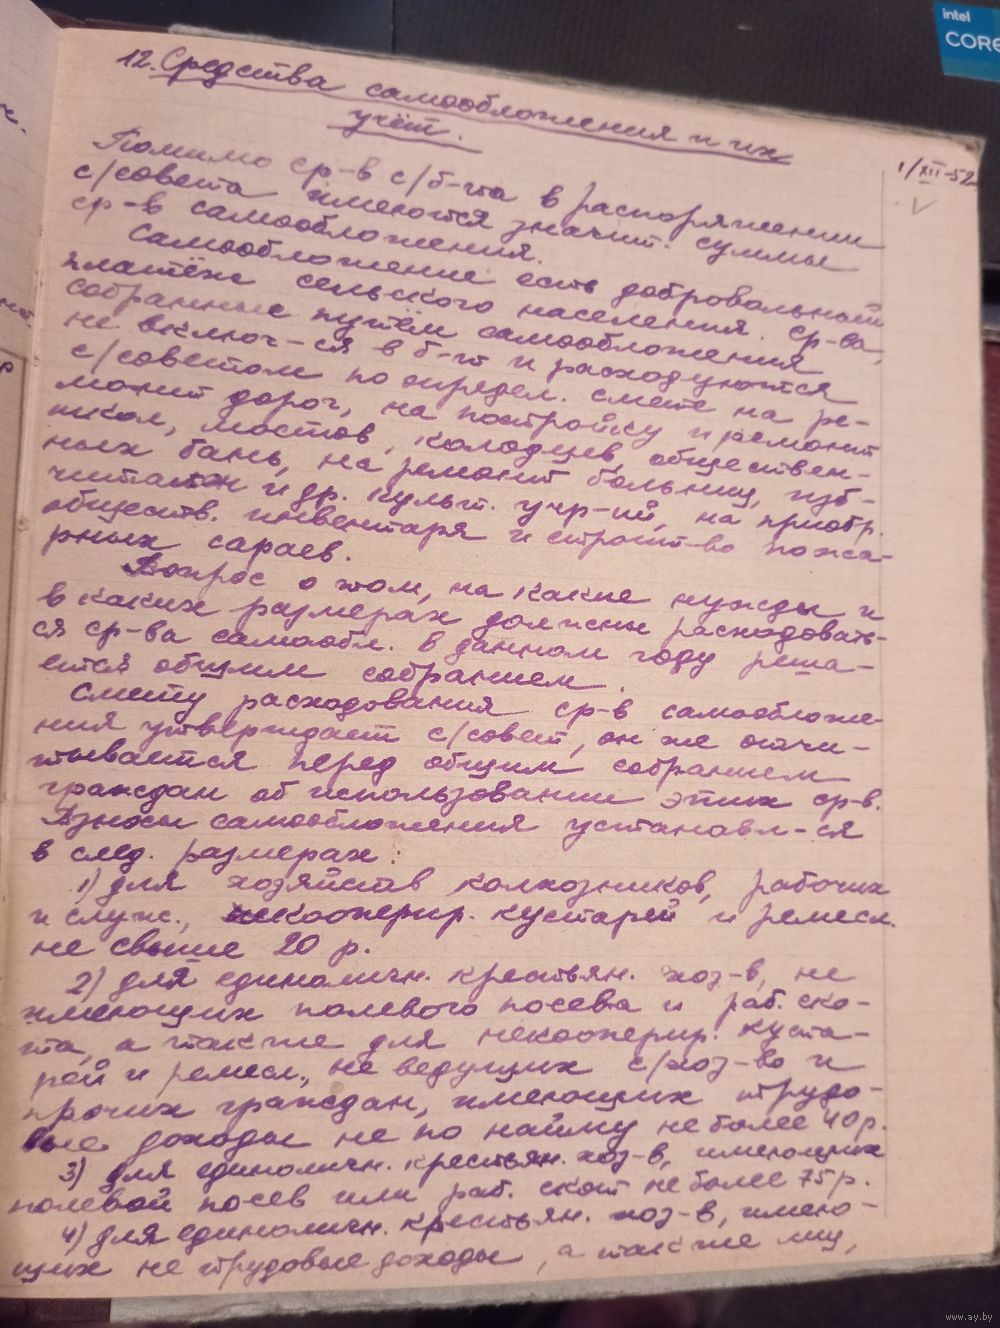 intel
CORE
12. Средства самообложения и их
учёт.
1/XII-52
Помимо ср-в с/б-та в распоряжении
с/совета имеются значит. суммы
ср-в самообложения.
Самообложение есть добровольный
платёж сельского населения. Ср-ва,
собранные путём самообложения
не включ-ся в б-т и расходуются
с/советом по определ. смете на ре-
монт дорог, на постройку и ремонт
школ, мостов, колодцев обществен-
ных бань, на ремонт больниц, изб-
читален и др. культ. учр-ий, на приобр.
обществ. инвентаря и строит-во пожа-
рных сараев.
Вопрос о том, на какие нужды и
в каких размерах должны расходовать-
ся ср-ва самообл. в данном году реша-
ется общим собранием.
Смету расходования ср-в самообложе-
ния утверждает с/совет, он же отчи-
тывается перед общим собранием
граждан об использовании этих ср-в.
Взносы самообложения устанавл-ся
в след. размерах:
1) для хозяйств колхозников, рабочих
и служ., кооперир. кустарей и ремесл.
не свыше 20 р.
2) для единоличн. крестьян. хоз-в, не
имеющих полевого посева и раб. ско-
та, а также для некооперир. куста-
рей и ремесл., не ведущих с/хоз-во и
прочих граждан, имеющих трудо-
вые доходы не по найму не более 40 р.
3) для единоличн. крестьян. хоз-в, имеющих
полевой посев или раб. скот не более 75 р.
4) для единоличн. крестьян. хоз-в, имею-
щих не трудовые доходы, а также лиц,
www.ay.by